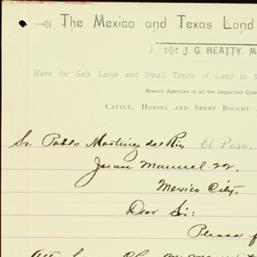 The Mexico and Texas Land
J. G. BEATTY, M
Have for Sale Large and Small Tracts of Land in M
Branch Agencies in all the Important Citie
CATTLE, HORSES AND SHEEP BOUGHT
Sr. Pablo Martinez del Rio El Paso,
Juan Manuel 22,
Mexico City.
Dear Sir:
Please f